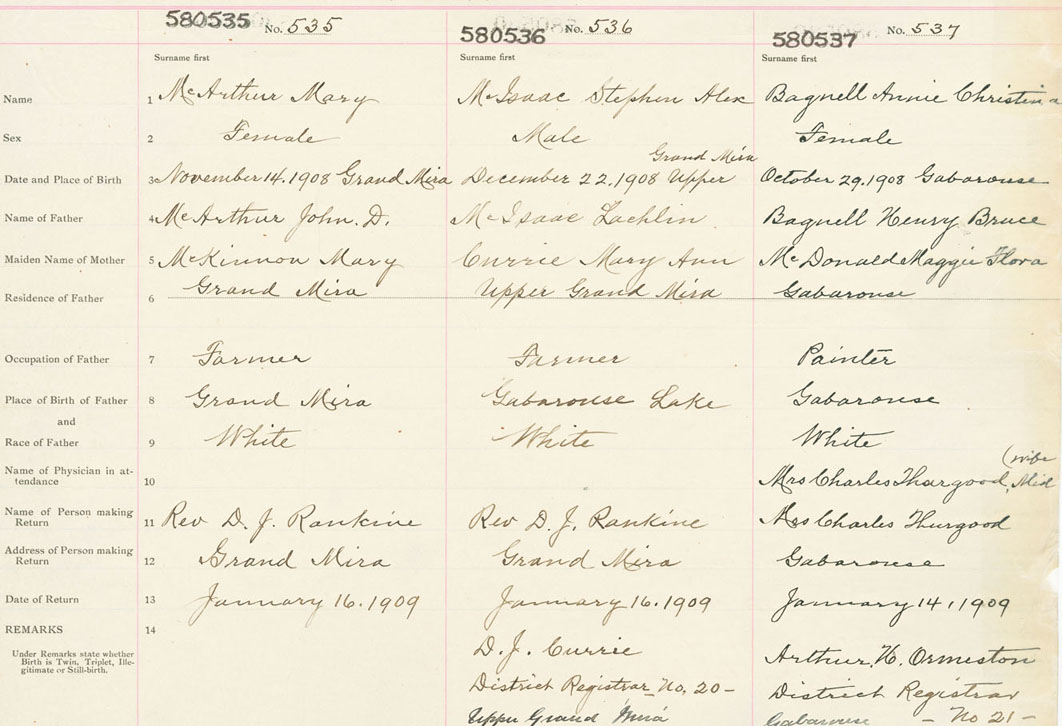 580535 No. 535 580536 No. 536 580537 No. 537
Surname first Surname first Surname first
Name 1 McArthur Mary McIsaac Stephen Alex Bagnell Annie Christina
Sex 2 Female Male Female
Grand Mira
Date and Place of Birth 3 November 14. 1908 Grand Mira December 22. 1908 Upper October 29. 1908 Gabarouse
Name of Father 4 McArthur John. D. McIsaac Lachlin Bagnell Henry Bruce
Maiden Name of Mother 5 McKinnon Mary Currie Mary Ann McDonald Maggie Flora
Residence of Father 6 Grand Mira Upper Grand Mira Gabarouse
Occupation of Father 7 Farmer Farmer Painter
Place of Birth of Father 8 Grand Mira Gabarouse Lake Gabarouse
and
Race of Father 9 White White White
Name of Physician in at-
tendance 10 Mrs Charles Thurgood, Mid
(wife
Name of Person making
Return 11 Rev D. J. Rankine Rev D. J. Rankine Mrs Charles Thurgood
Address of Person making
Return 12 Grand Mira Grand Mira Gabarouse
Date of Return 13 January 16. 1909 January 16. 1909 January 14, 1909
REMARKS 14
Under Remarks state whether
Birth is Twin, Triplet, Ille-
gitimate or Still-birth.
D. J. Currie
District Registrar No. 20-
Upper Grand Mira
Arthur. H. Ormeston
District Registrar
Gabarouse - No 21-